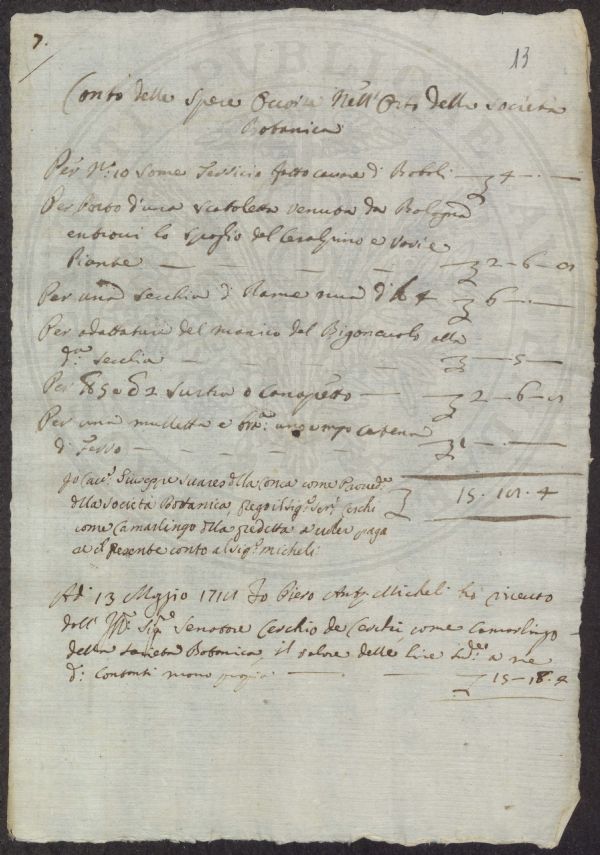 7.
13
Conto delle Spese Nell'Orto della Società
Botanica
Per N.º 10 Some d Boboli — 4 — . —
Per Porto d'una Scatoletta venuta da Bologna
entrovi lo spoglio del Cesalpino e Varie
Piante — — — — — 2 - 6 -
Per una Secchia di Rame nuova d 4 — 6 — . —
Per adattature del manico del Bigonciuolo alla
d.ª Secchia — — — — — 5 —
Per e 2 o Canapetto — 2 - 6 -
Per una mulletta e catena
di ferro — — — — 1 — . —
Io Cav.º Giuseppe Suares della Conca come Proved.º
della Società Botanica, prego il Sig.º Sen.º Cerchi
come Camarlingo della predetta a voler paga
re il presente conto al Sig.º Micheli
15. 4
Ad 13 Maggio Io Piero Ant.º Micheli ho ricevuto
dall' Ill.º Sig.º Senatore Cerchio de Cerchi come Camarlingo
della Società Botanica, il valore delle lire a me
d. Contanti mano propria — — 15 - 18 - 4